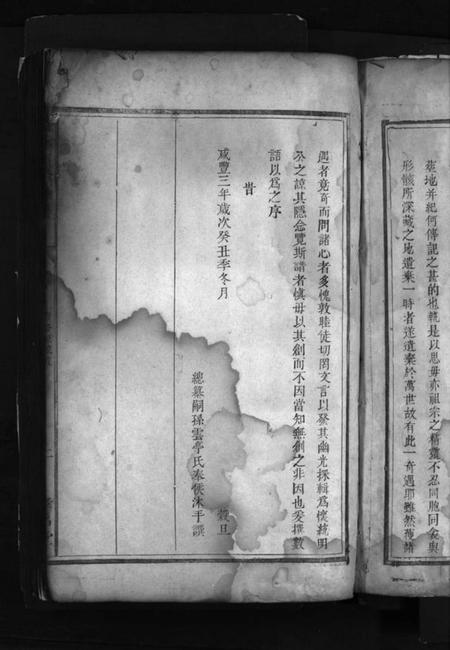 塋地并紀何傳記之甚的也觕是以思毋亦祖宗之精靈不忍同胞同氣與
形骸所深藏之地遺棄一時者遂遺棄於萬世故有此一奇遇耶雖然苟諸
遇者竟奇而問諸心者多愧敦睦徒切罔文言以發其幽光採輯為懷統明
公之諒其隱念覽斯譜者慎毋以其創而不因當知無創之非因也爰撰數
語以為之序
旹
咸豐三年歲次癸丑季冬月 穀旦
總纂嗣孫雲亭氏奉候沐手譔